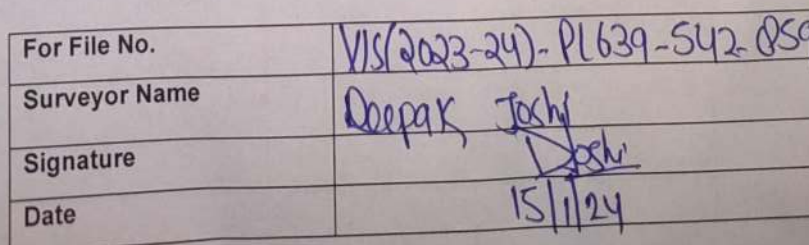 For File No. VIS(2023-24)-PL639-542-
Surveyor Name Deepak Joshi
Signature Joshi
Date 15/1/24